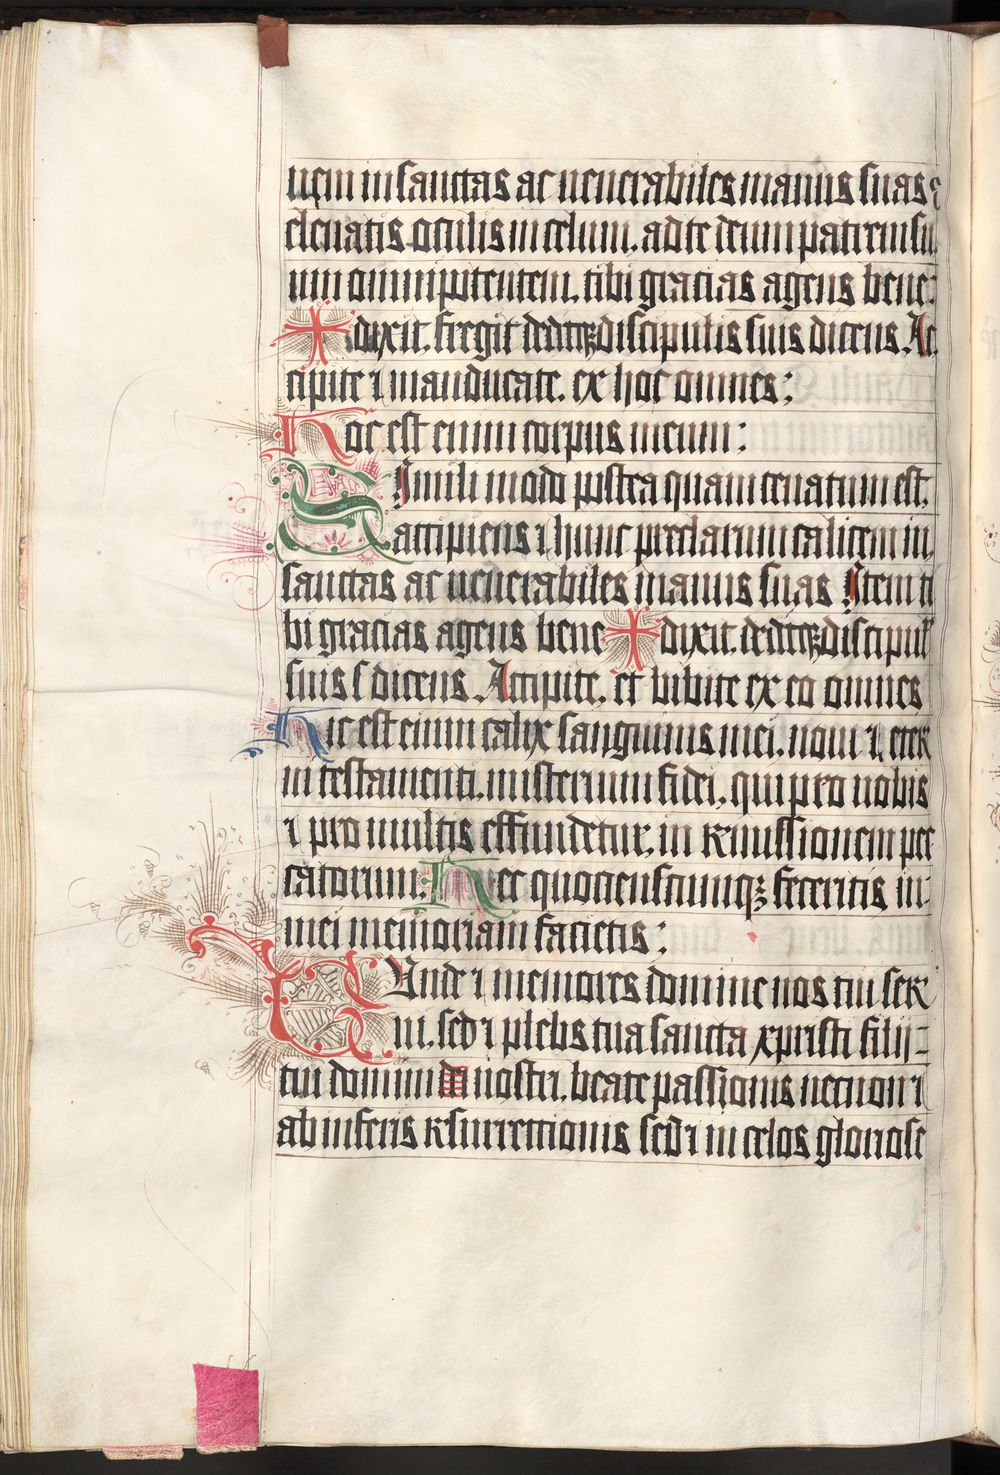 nem in sanctas ac uenerabiles manus suas ⁊
eleuatis oculis in celum. ad te deum patrem su
um omnipotentem. tibi gracias agens bene:
✝ dixit. fregit deditqꝫ discipulis suis dicens. Ac
cipite ⁊ manducate. ex hoc omnes;
Hoc est enim corpus meum:
Simili modo postea quam cenatum est.
accipiens ⁊ hunc preclarum calicem in
sanctas ac uenerabiles manus suas Item ti
bi gracias agens bene ✝ dixit. deditqꝫ discipul
suis dicens. Accipite. et bibite ex eo omnes
Hic est enim calix sanguinis mei. noui ⁊ eter
ni testamenti. misterium fidei. qui pro nobis
⁊ pro multis effundetur. in remissionem pec
catorum. Hec quocienscumqꝫ feceritis in:
mei memoriam facietis:
Unde ⁊ memores domine nos tui ser
ui. sed ⁊ plebs tua sancta xpristi filii
tui domini nostri. beate passionis necnon ⁊
ab inferis resurrectionis sed ⁊ in celos gloriose